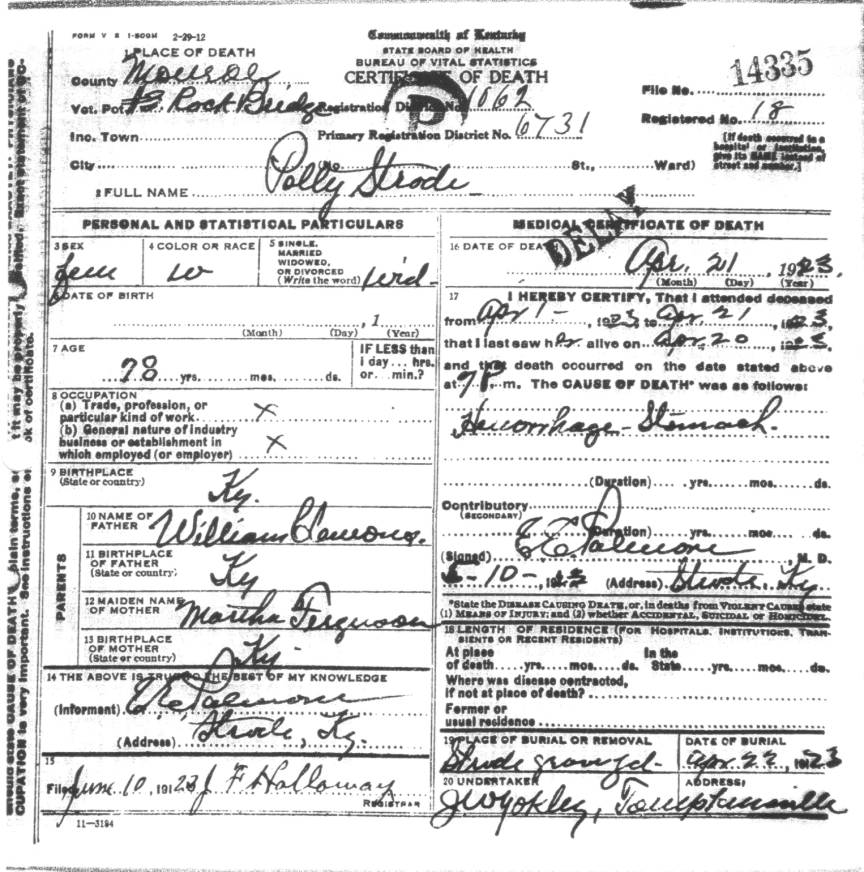 FORM V S 1-500M 2-29-12
Commonwealth of Kentucky
STATE BOARD OF HEALTH
BUREAU OF VITAL STATISTICS
CERTIFICATE OF DEATH
1 PLACE OF DEATH
County Monroe
Vot. Pct. #3 Rock Bridge Registration District No. 1062
Inc. Town Primary Registration District No. 6731
City (No. St., Ward)
File No. 14335
Registered No. 18
[If death occurred in a
hospital or institution,
give its NAME instead of
street and number.]
2 FULL NAME Polly Strode
DELAY
PERSONAL AND STATISTICAL PARTICULARS
3 SEX
fem
4 COLOR OR RACE
w
5 SINGLE,
MARRIED
WIDOWED,
OR DIVORCED
(Write the word) wid
6 DATE OF BIRTH
, 1
(Month) (Day) (Year)
7 AGE
78 yrs. mos. ds.
IF LESS than
1 day ... hrs.
or ... min.?
8 OCCUPATION
(a) Trade, profession, or
particular kind of work x
(b) General nature of industry
business or establishment in
which employed (or employer) x
9 BIRTHPLACE
(State or country)
Ky.
PARENTS
10 NAME OF
FATHER William
11 BIRTHPLACE
OF FATHER
(State or country)
Ky
12 MAIDEN NAME
OF MOTHER Martha Ferguson
13 BIRTHPLACE
OF MOTHER
(State or country)
Ky.
14 THE ABOVE IS TRUE TO THE BEST OF MY KNOWLEDGE
(Informant) E E Palmore
(Address) Strode, Ky.
15
Filed June 10, 1923 J F Holloway
REGISTRAR
11-3184
MEDICAL CERTIFICATE OF DEATH
16 DATE OF DEATH
Apr. 21, 1923
(Month) (Day) (Year)
17 I HEREBY CERTIFY, That I attended deceased
from Apr 1 - 1923 to Apr. 21, 1923,
that I last saw her alive on Apr. 20, 1923,
and that death occurred on the date stated above
at 7 P. m. The CAUSE OF DEATH* was as follows:
Hemorrhage - Stomach.
(Duration) yrs. mos. ds.
Contributory
(SECONDARY)
(Duration) yrs. mos. ds.
(Signed) E E Palmore M. D.
5-10-, 1923 (Address) Strode, Ky
*State the DISEASE CAUSING DEATH, or, in deaths from VIOLENT CAUSES state
(1) MEANS OF INJURY; and (2) whether ACCIDENTAL, SUICIDAL or HOMICIDAL
18 LENGTH OF RESIDENCE (FOR HOSPITALS, INSTITUTIONS, TRAN-
SIENTS OR RECENT RESIDENTS)
At place In the
of death yrs. mos. ds. State yrs. mos. ds.
Where was disease contracted,
if not at place of death?
Former or
usual residence
19 PLACE OF BURIAL OR REMOVAL
Strode
DATE OF BURIAL
Apr 22, 1923
20 UNDERTAKER
J W Yokley,
ADDRESS:
Tompkinsville